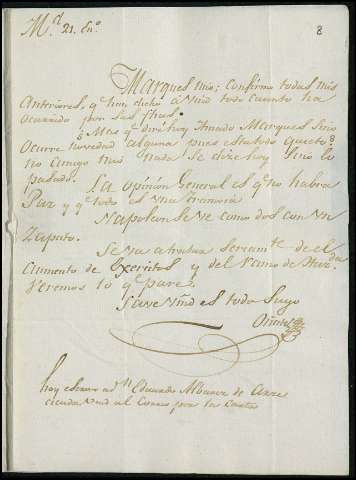 M.d 21. En.o
8
Marques mio; Confirmo todas mis
Anteriores, q.e han dicho a Vmd todo cuanto ha
Ocurrido por las
¿Mas q.e dire hoy Amado Marques sino
Ocurre novedad alguna pues esta todo quieto?
no Amigo mio nada se dize hoy sino lo
pasado. La opinion General es q.e no habra
Paz y q.e todo es una tramoia
Napoleon se ve como dos con un
Zapato.
Se va a tratar seriam.te de el
Aumento de Exercitos y del Ramo de Haz.da
Veremos lo q.e pare.
Save Vmd es todo Suyo
hoy escrivo a d.n Eduardo Albarez de
cuenda Vmd al Correo por la Carta